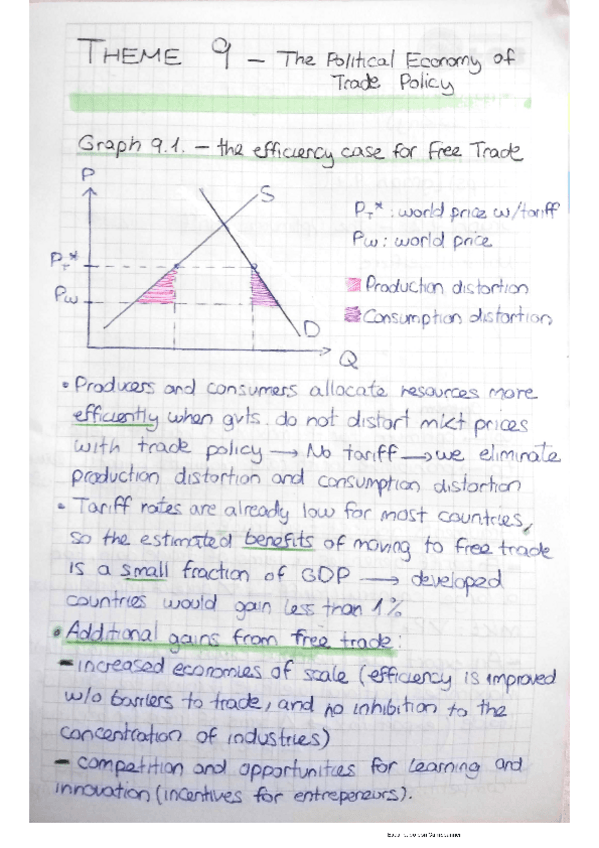 THEME 9 – The Political Economy of
Trade Policy
Graph 9.1. – the efficiency case for Free Trade
P
S
P_T* : world price w/tariff
Pw : world price
P_T*
Pw
Production distortion
Consumption distortion
D
Q
• Producers and consumers allocate resources more
efficiently when gvts. do not distort mkt prices
with trade policy → No tariff → we eliminate
production distortion and consumption distortion
• Tariff rates are already low for most countries,
so the estimated benefits of moving to free trade
is a small fraction of GDP → developed
countries would gain less than 1%
• Additional gains from free trade:
– increased economies of scale (efficiency is improved
w/o barriers to trade, and no inhibition to the
concentration of industries)
– competition and opportunities for learning and
innovation (incentives for entrepeneurs).